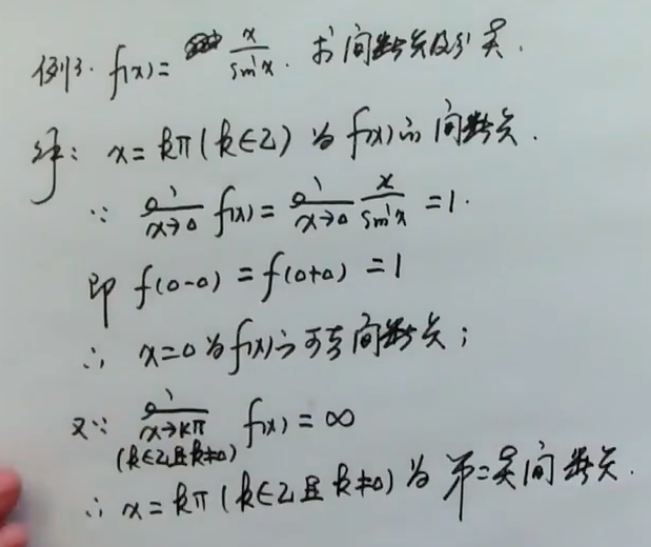 例3. f(x)= x/sin x. 求间断点及分类.
解: x=kπ(k∈Z) 为 f(x) 的间断点.
∵ lim x→0 f(x) = lim x→0 x/sin x =1.
即 f(0-0) = f(0+0) = 1
∴ x=0 为 f(x) 的可去间断点;
又∵ lim x→kπ (k∈Z且k≠0) f(x) = ∞
∴ x=kπ (k∈Z且 k≠0) 为第二类间断点.